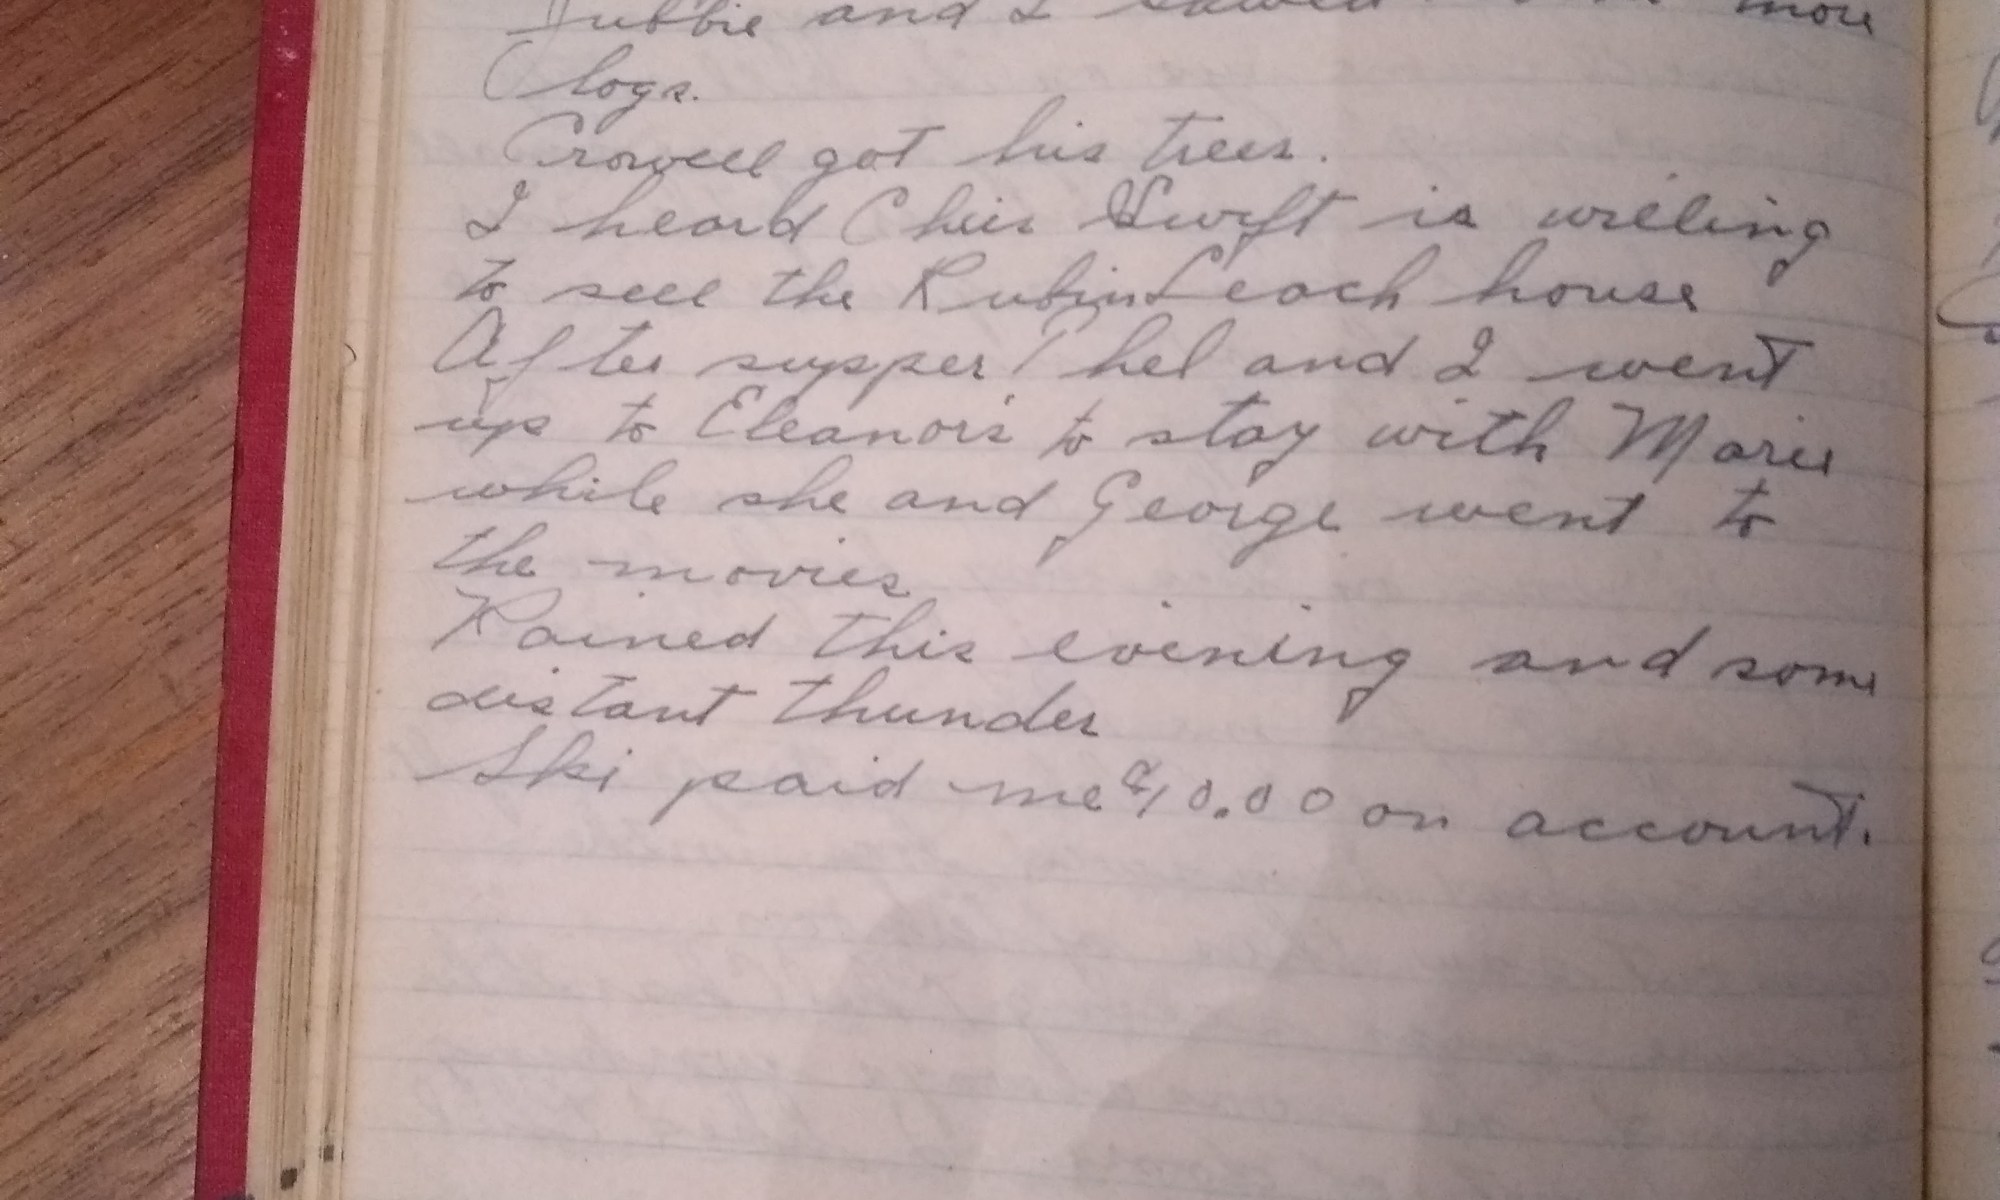 and I sawed more
logs.
Crowell got his trees.
I heard Chis Swift is willing
to sell the Rubin Leach house
After supper Chel and I went
up to Eleanor's to stay with Marie
while she and George went to
the movies
Rained this evening and some
distant thunder
Ski paid me $10.00 on account.